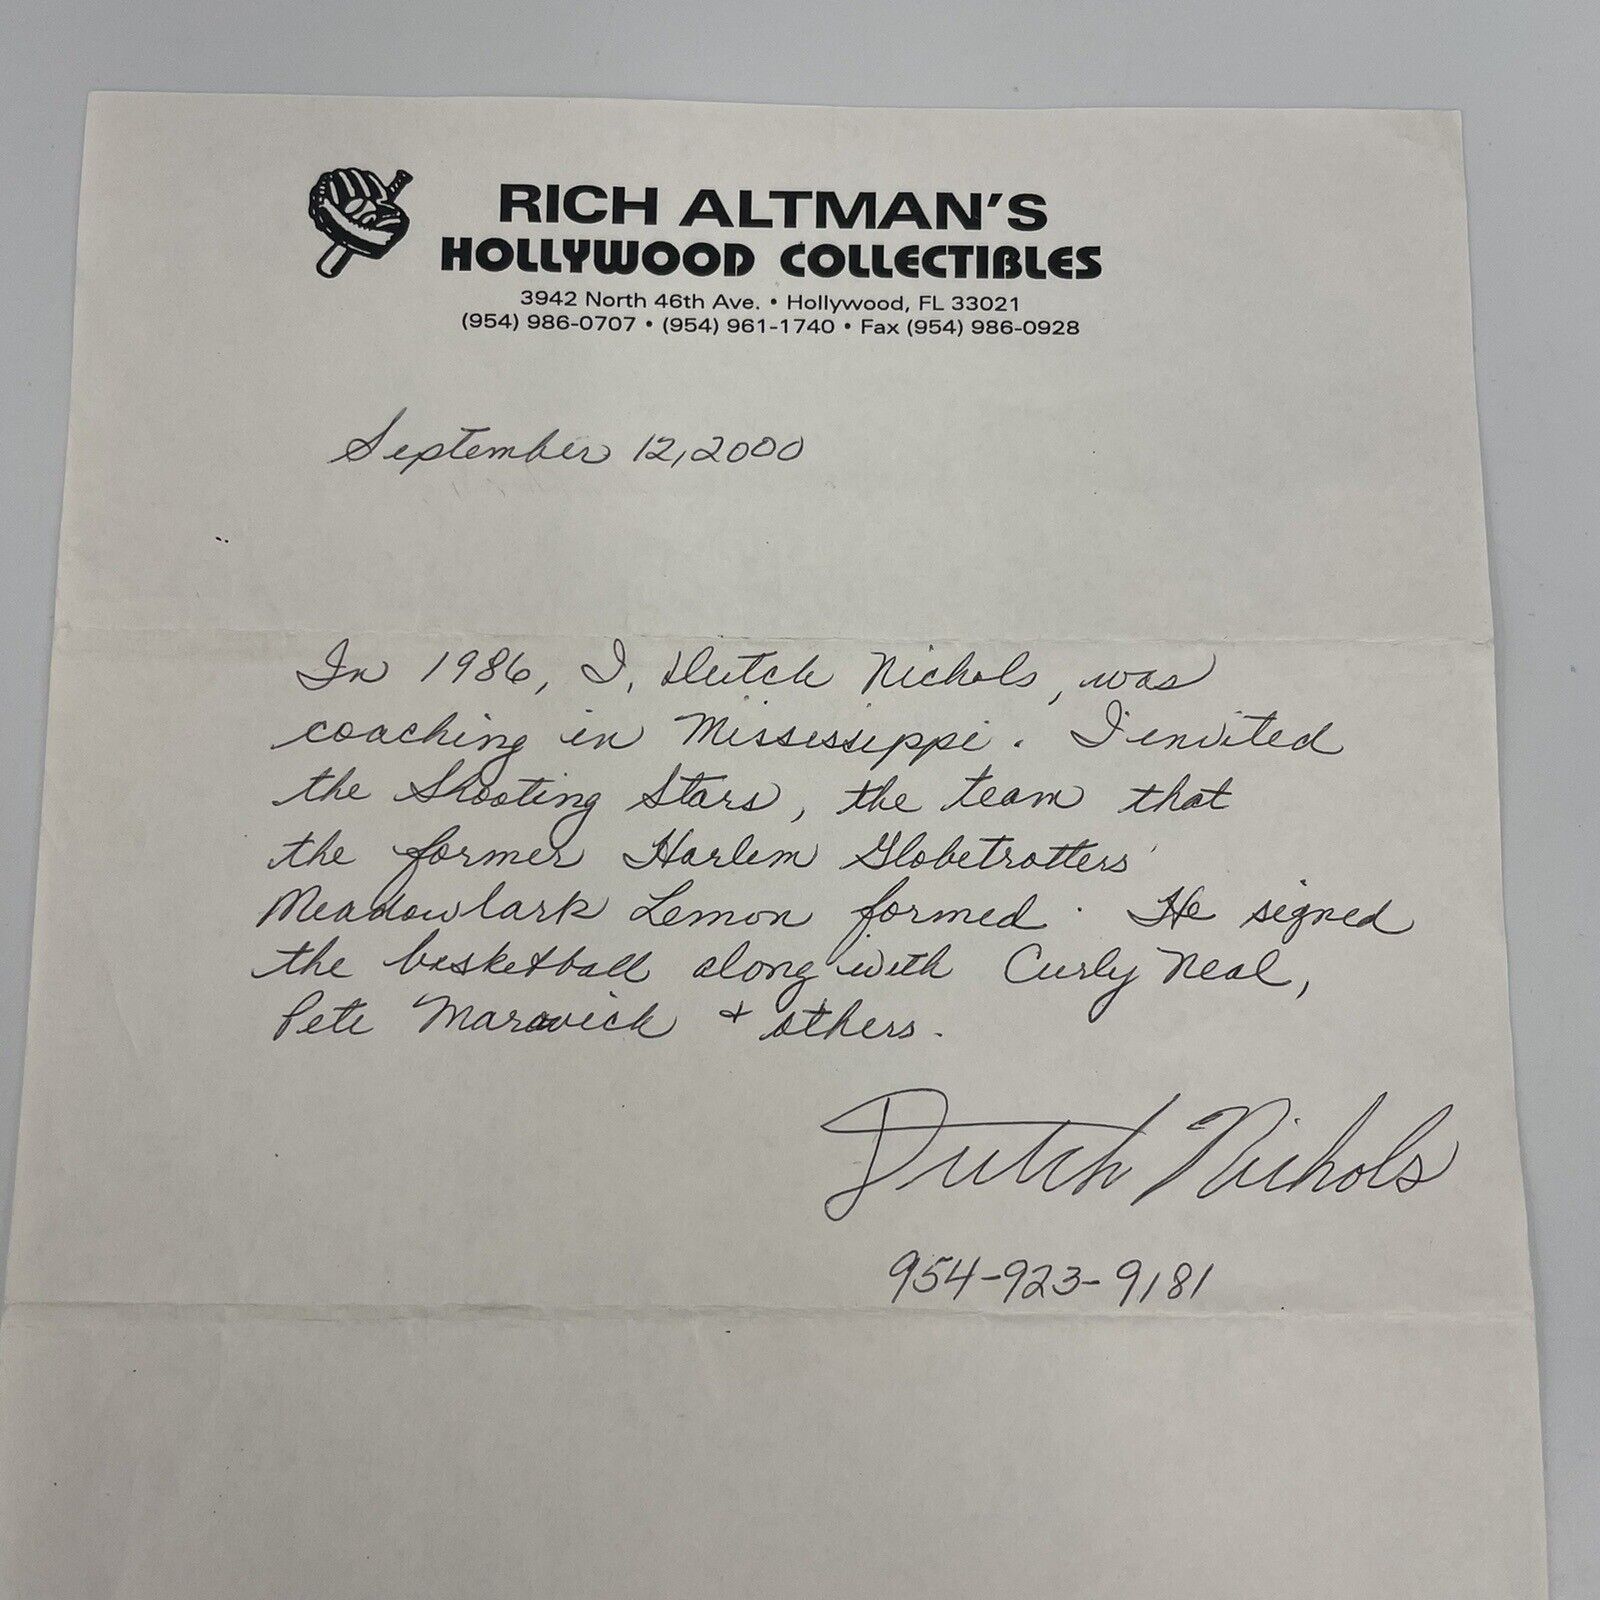 RICH ALTMAN'S
HOLLYWOOD COLLECTIBLES
3942 North 46th Ave. • Hollywood, FL 33021
(954) 986-0707 • (954) 961-1740 • Fax (954) 986-0928
September 12, 2000
In 1986, I, Dutch Nichols, was
coaching in Mississippi. I invited
the Shooting Stars, the team that
the former Harlem Globetrotters'
Meadowlark Lemon formed. He signed
the basketball along with Curly Neal,
Pete Maravich & others.
Dutch Nichols
954-923-9181